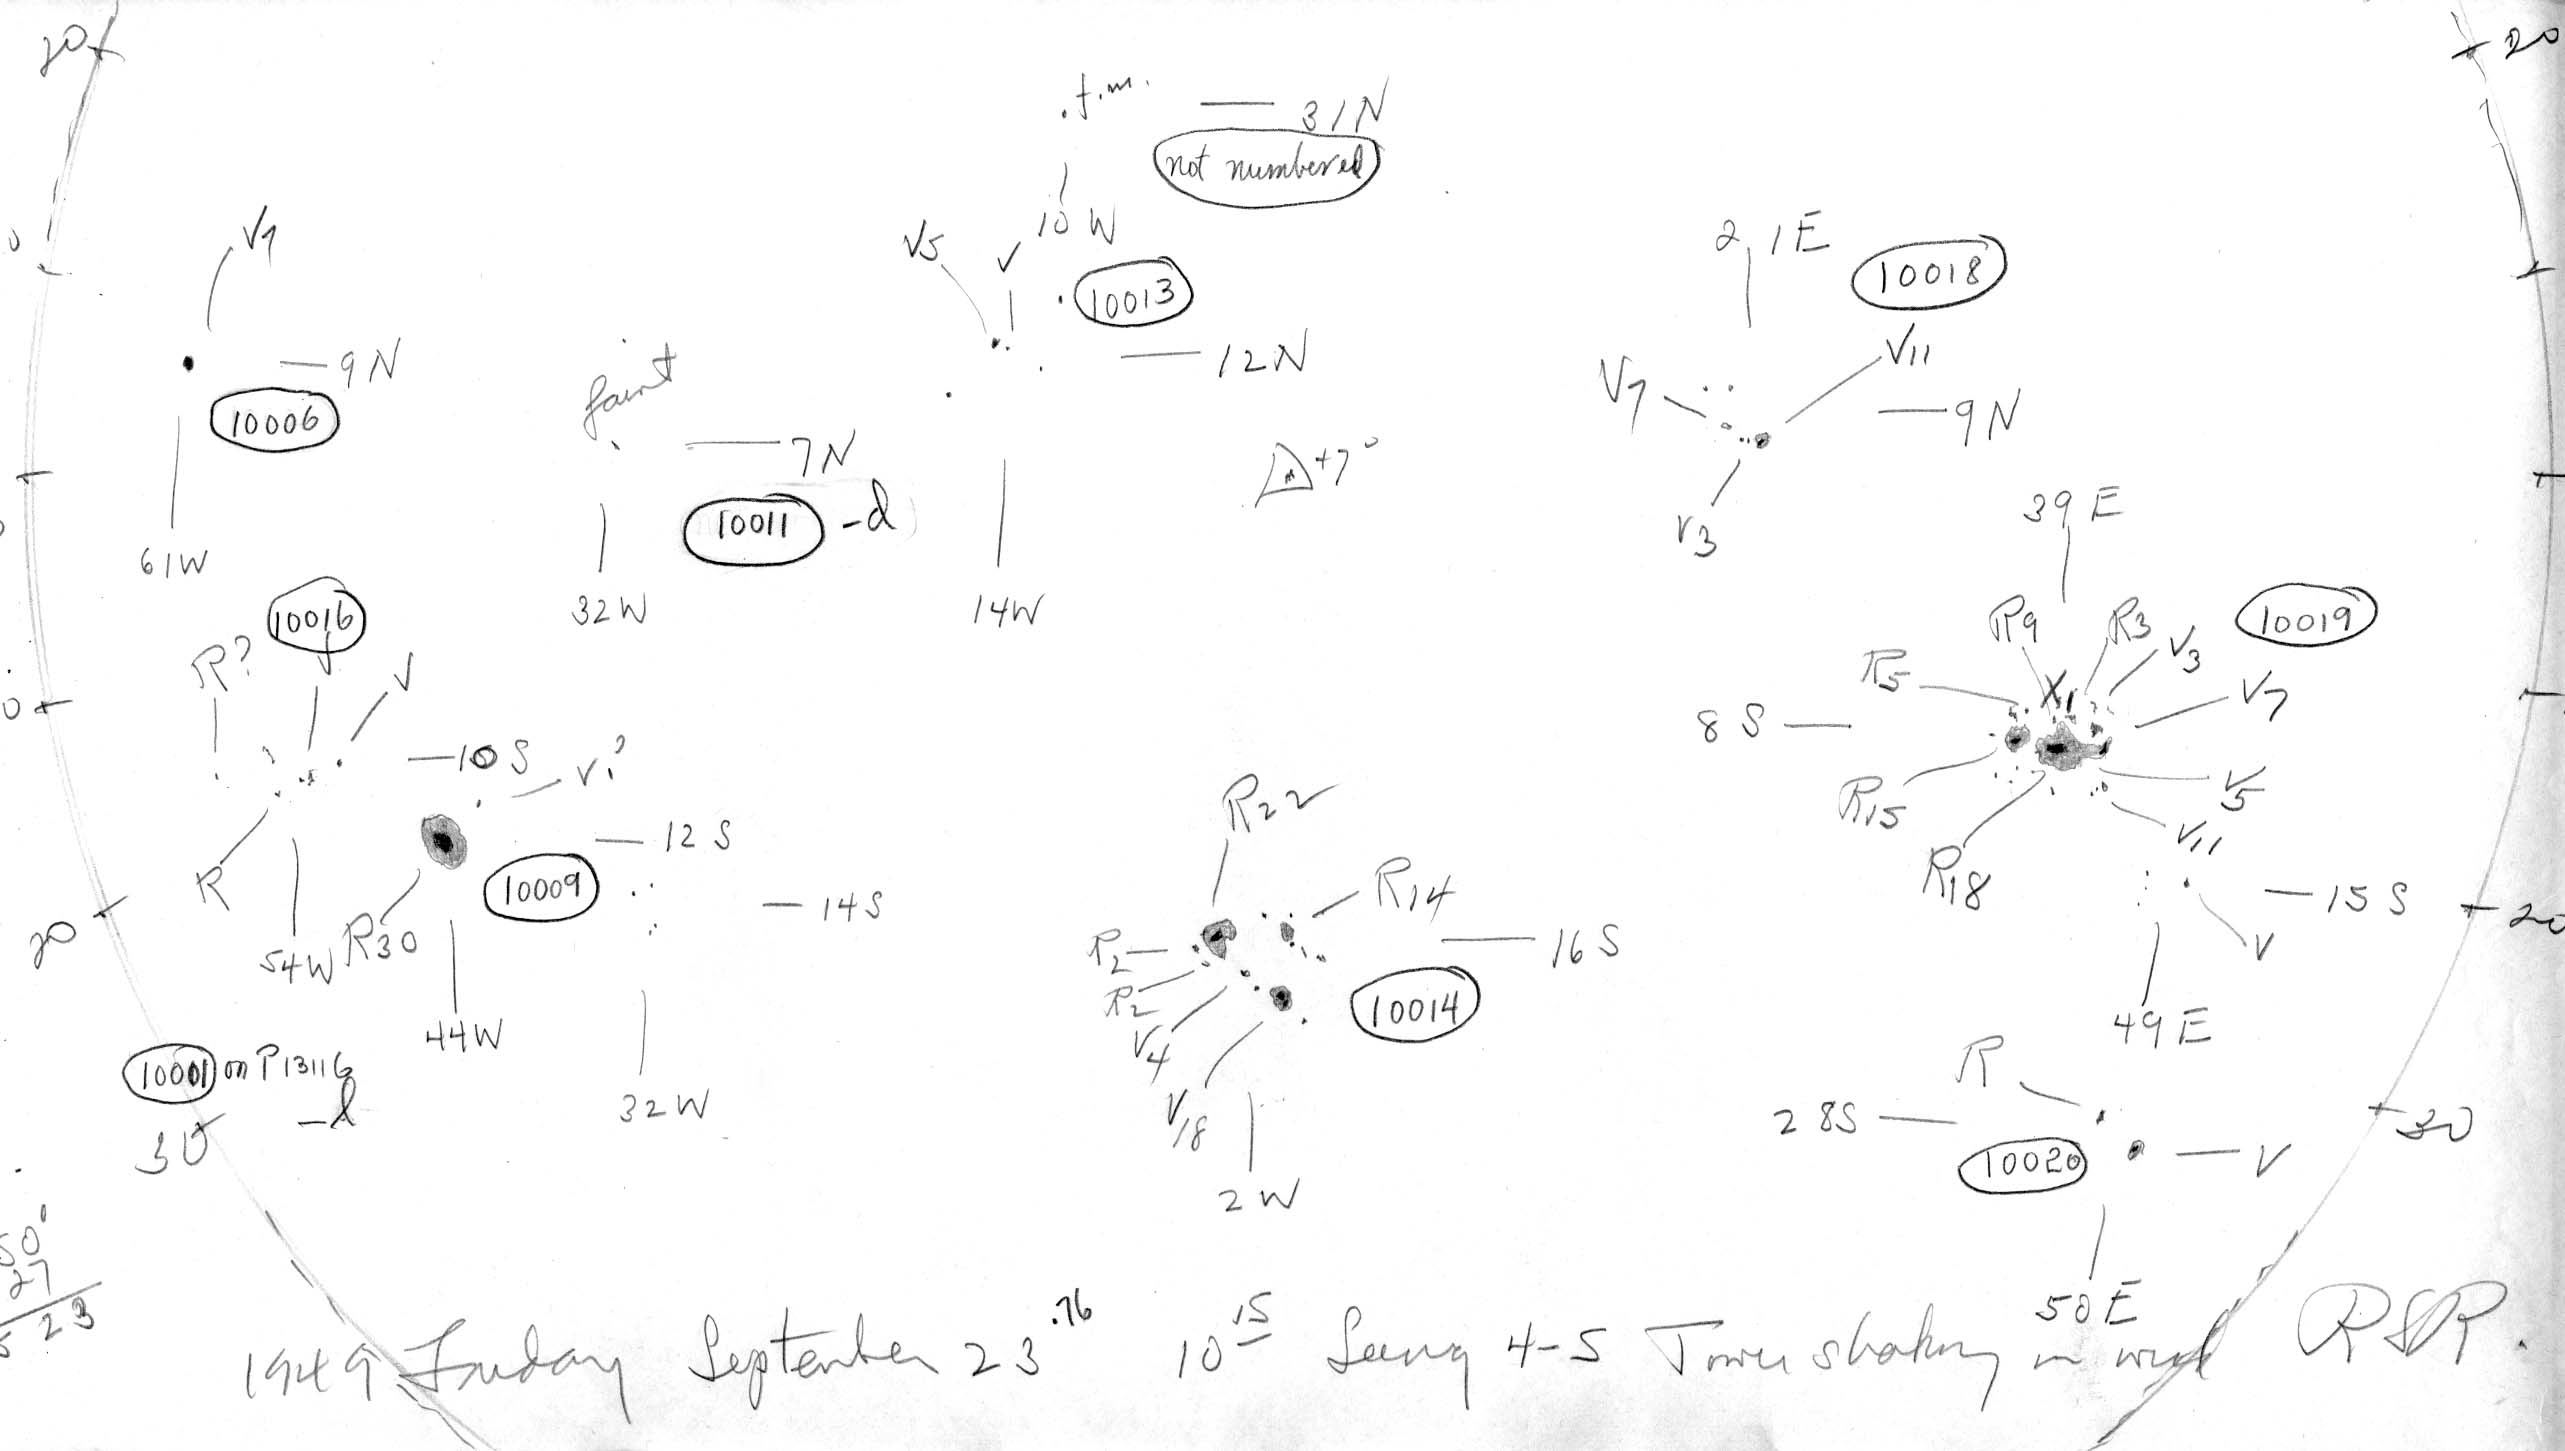 20
20
f.m.
31N
not numbered
10 W
V7
V5
V
10013
21E
10018
V11
9N
10006
faint
12N
V7
9N
7N
+7°
V3
10011 -d
39 E
61W
32W
14W
10016
R9
R3
V3
10019
R?
V
V
R5
X1
V7
0
8 S
10 S
V?
R15
V5
R22
12 S
V11
R
10009
14S
R14
R18
15 S
20
20
R30
R2
16 S
V
54W
R2
10014
44W
V4
49 E
10001 on P13116
-l
R
32W
V18
28S
30
30
10020
V
2W
50°
27
23
50 E
1949 Friday September 23.76 10 15 Seeing 4-5 Tower shaking in wind RSR.